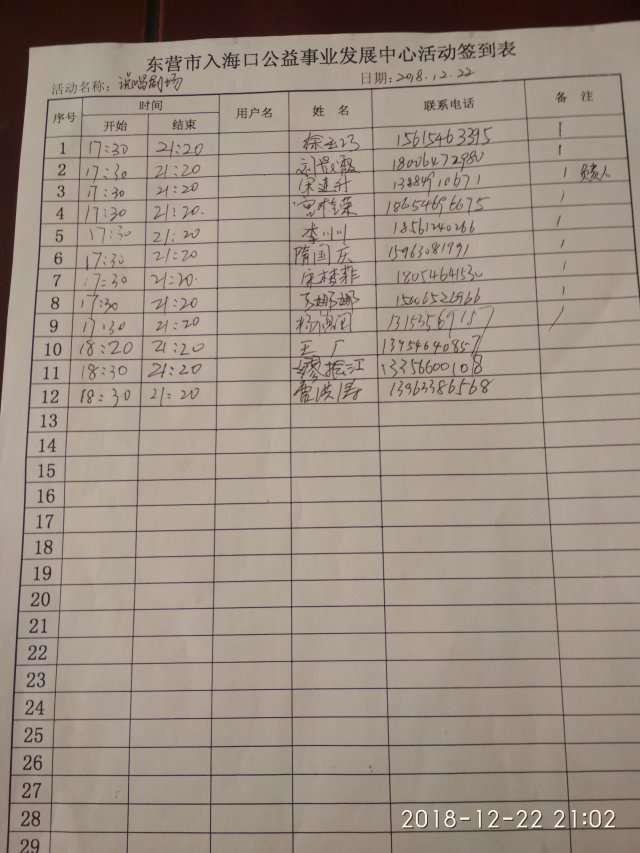 东营市入海口公益事业发展中心活动签到表
活动名称：说唱剧场 日期：2018.12.22
序号 时间 用户名 姓名 联系电话 备注
开始 结束
1 17:30 21:20 15615463395 1
2 17:30 21:20 18006472980 1
3 17:30 21:20 宋连升 13884910671 1 负责人
4 17:30 21:20. 18654696675 1
5 17:30 21:20 李川川 18561240266 1
6 17:30 21:20 隋国庆 15963081791 1
7 17:30 21:20. 宋桂菲 18054641530 1
8 17:30 21:20 娜娜 15006522966 1
9 17:30 21:20 13153569157 /
10 18:20 21:20 王广 13954640857
11 18:30 21:20 缪 江 13356600108
12 18:30 21:20 曹洪涛 13963386568
13
14
15
16
17
18
19
20
21
22
23
24
25
26
27
28
29
2018-12-22 21:02